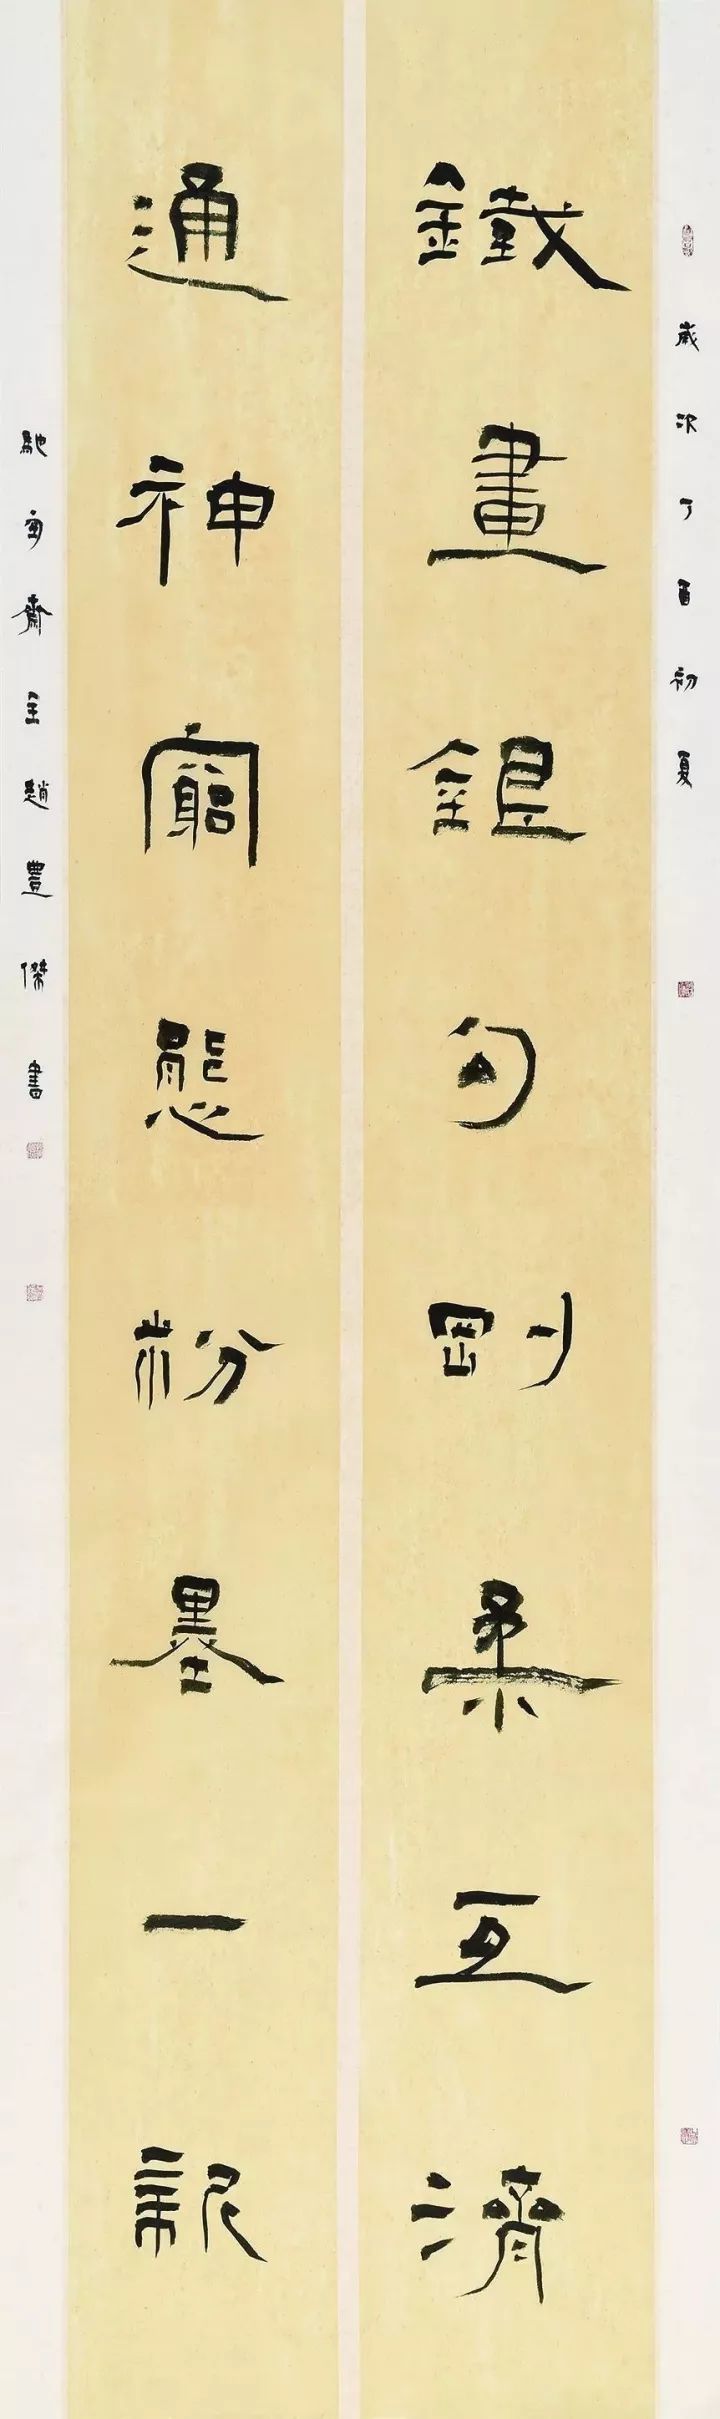 歲次丁酉初夏
鐵畫銀勾剛柔互濟
通神窮態粉墨一新
馳齋主趙豐傑書